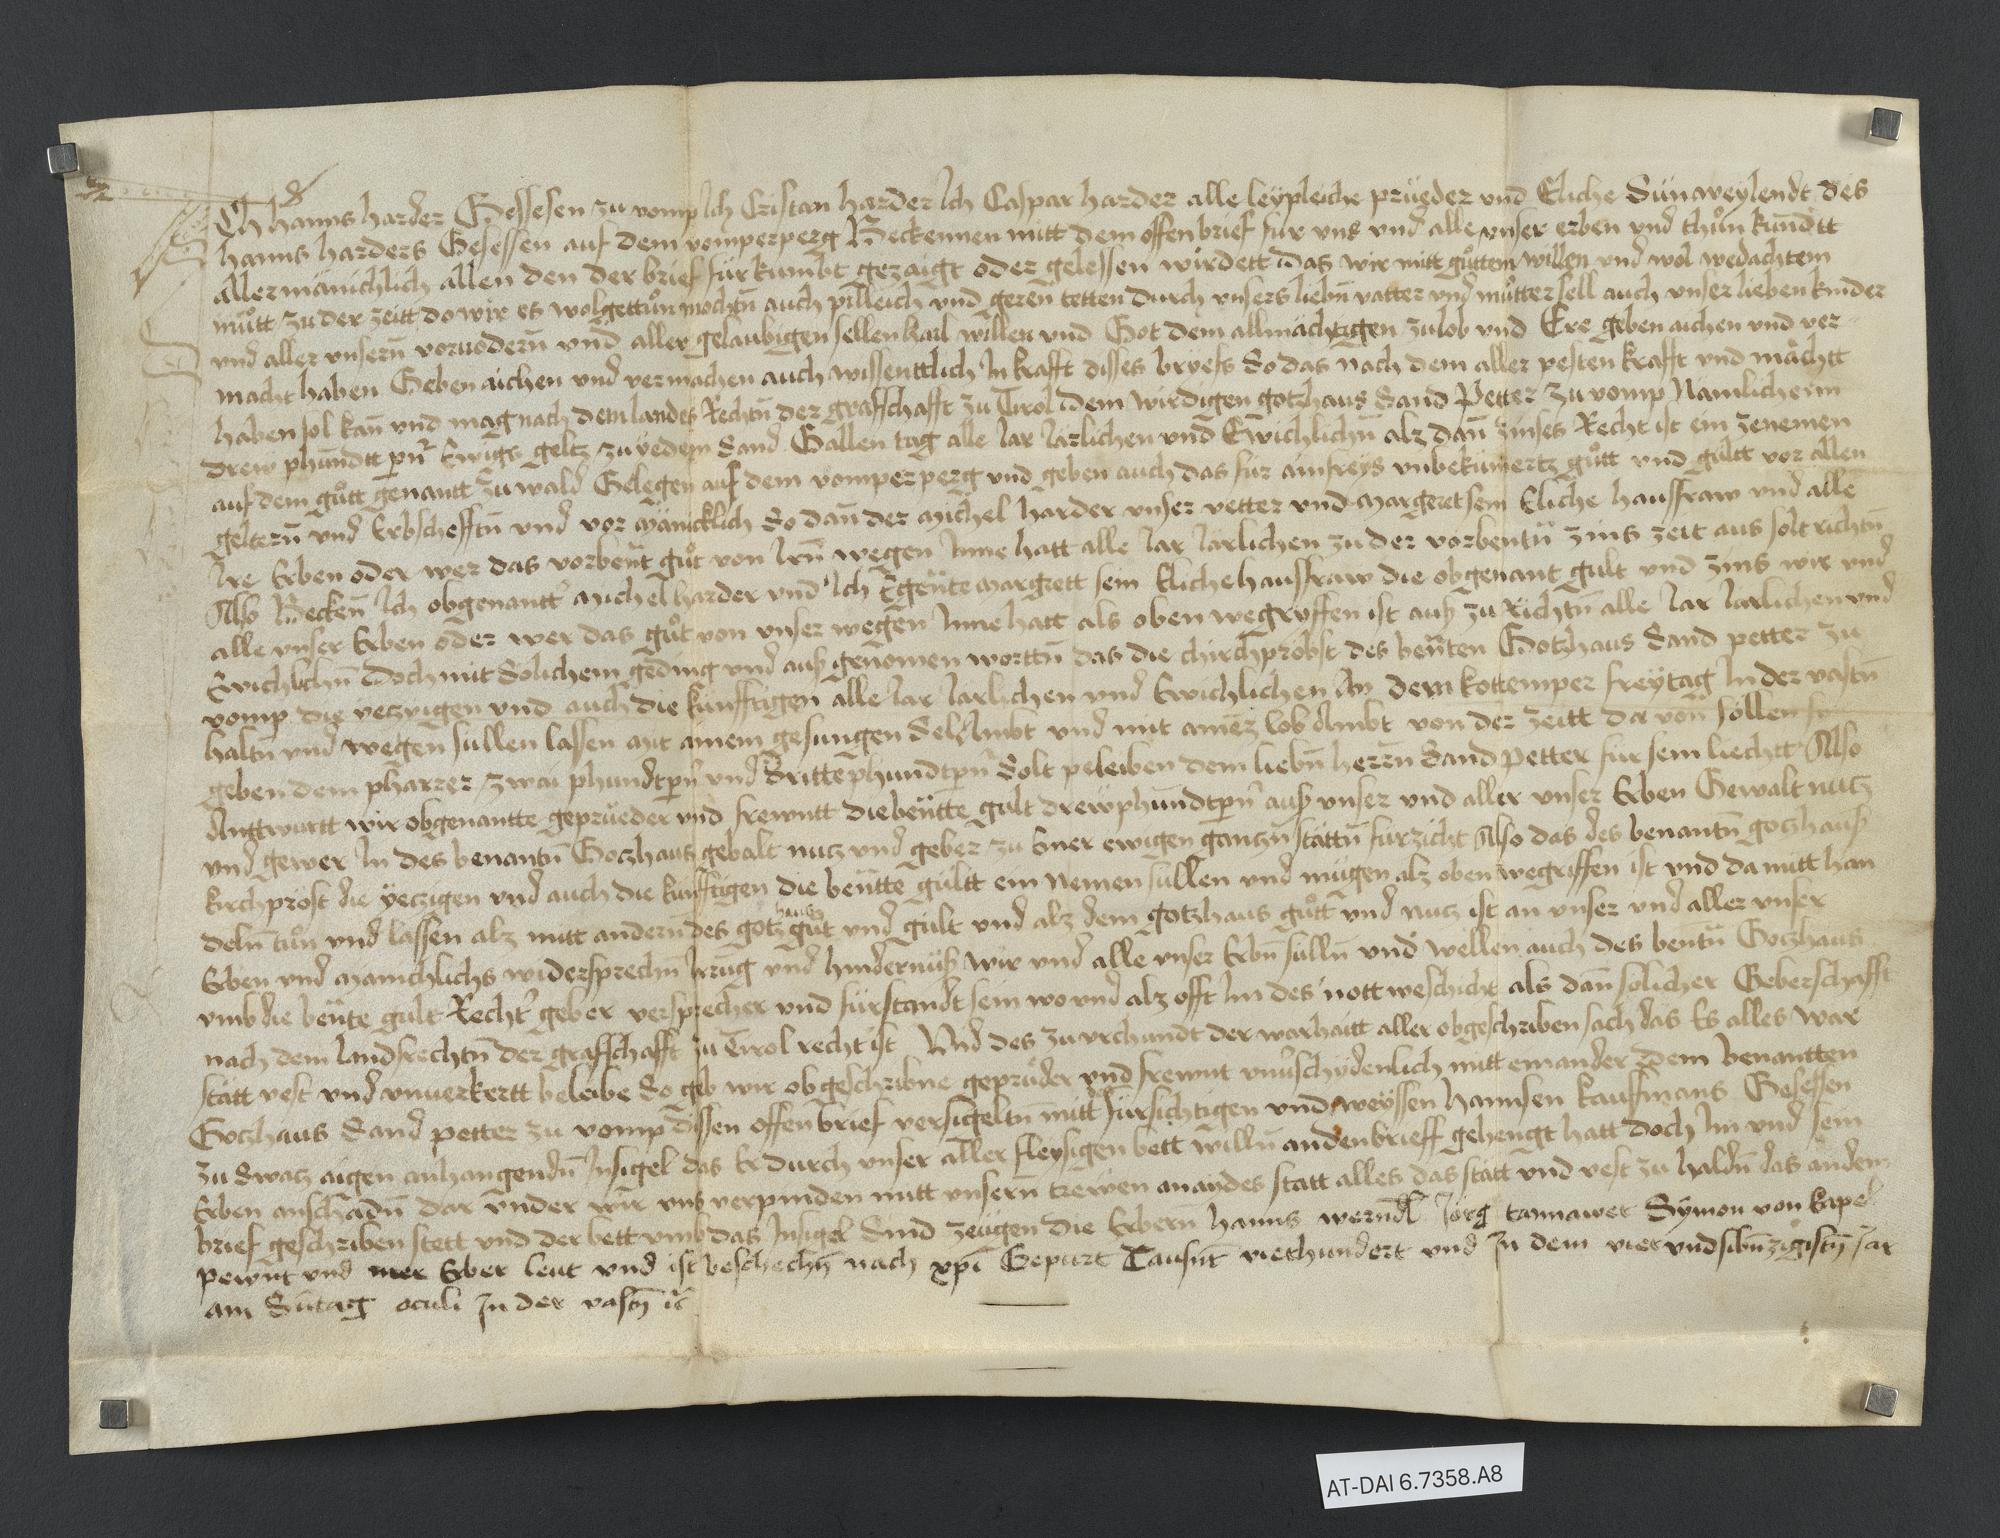 Ich hanns harder Gessesen zu vomp Ich Cristan harder Ich Caspar harder alle leypleiche prüeder und Eliche Sün weylendt des
hanns harders Gesessen auf dem vomperperg Beckennen mitt dem offen brief für uns und alle unser erben und thůn kundtt
allermänichlich allen den der brief für kumbt gezaigt oder gelessen wirdett das wir mitt gůttem willen und wol wedachtem
můtt zu der zeitt do wir es wolgettůn mochtn̄ auch pilleich und geren tetten durch unsers liebn̄ vatter und můtter sell auch unser lieben kinder
und aller unsern̄ voruodern̄ und aller gelaubigen sellen hail willen und Got dem allmächtigen zu lob und Ere geben aichen und ver
macht haben Geben aichen und vermachen auch wissenttlich In krafft disses bryefs So das nach dem aller pesten krafft und mächtt
haben sol kan̄ und mag nach dem landes Rechtn̄ der graffschafft zu Tirol dem wirdigen gotzhaus Sand Petter zu vomp Namlichenn
drew phundtt pn̄r Ewigs geltz zu yedem Sand Gallen tag alle Iar Iärlichen und Ewichlichn̄ alz dan̄ zinses Recht ist ein zenemen
auf dem gůtt genantt zu wald Gelegen auf dem vomperperg und geben auch das für ain freys unbekümertz gůtt und gültt vor allen
geltern̄ und Erbschefftn̄ und vor mänicklich So dan̄ der michel harder unser vetter und margeret sein Eliche hausfraw und alle
Ire Erben oder wer das vorben̄t gůt von Irn̄ wegen Inne hatt alle Iar Iärlichen zu der vorbentn̄ zins zeit aus solt richtn̄
Also Becken̄ Ich obgenantt' michel harder und Ich Egen̄te margrett sein Eliche hausfraw die obgenant gült und zins wir und
alle unser Erben oder wer das gůt von unser wegen Inne hatt als oben wegryffen ist auß zu Richtn̄ alle Iar Iarlichen und
Ewichlichn̄ Doch mit Solichem geding und auß genomen worttn̄ das die chirchpröbst des ben̄ten Gotzhaus Sand petter zu
vomp die yetzigen und auch die künfftigen alle Iar Iarlichen und Ewichlichen An dem kottemper freytag In der vastn̄
haltn̄ und wegen süllen lassen mit ainem gesungen Sel Ambt und mit ainer lob Ambt von der zeitt da von söllen sy
geben dem pharrer zwai phundt pn̄r und Dritte phundt pn̄r Solt peleiben dem liebn̄ herrn̄ Sand Petter für sein liechtt Also
Anttwurtt wir obgenantte geprüeder und frewntt die ben̄tte gült drew phundt pn̄r auß unser und aller unser Erben Gewalt nutz
und gewer In des benantn̄ Gotzhaus gebalt nutz und geber zu Einer ewigen gantzn̄ stättn̄ fürzicht Also das des benantn̄ gotzhauß
kirchpröst die yetzigen und auch die künfftigen die ben̄tte gültt ein nemen süllen und mügen alz oben wegriffen ist und da mitt han
deln̄ tůn und lassen alz mitt andern des gotzhaus gůt und gült und alz dem gotzhaus gůtt und nutz ist an unser und aller unser
Erben und mänichlichs widersprechn̄ Irrūg und hindernüß Wir und alle unser Erbn̄ sulln̄ und wellen auch des bentn̄ Gotzhaus
umb die ben̄te gült Recht' geber versprecher und fürstandt sein wo und alz offt Im des nott weschicht als dan̄ solicher Geberschafft
nach dem landsrechtn̄ der graffschafft zu Tirol recht ist Und des zu urchundt der warhaitt aller obgeschriben sach das Es alles war
stätt vest und unuerkertt beleibe So geb wir obgeschribne geprüder und frewnt unuerschydenlich mitt einander Dem benantten
Gotzhaus Sand petter zu vomp dissen offen brief versigeltn̄ mitt fürsichtigen und weyssen hannsen kaufmans Gesessen
zu Swatz aigen anhangendn̄ Insigel das Er durch unser aller fleysigen bett willn̄ an den brieff gehengt hatt doch Im und sein
Erben anschadn̄ dar under wir uns verpinden mitt unsern̄ trewen an aydes statt alles das statt und vest zu haldn̄ das an dem
brief geschriben stett und der bett umb das Insigel Sind zeügen die Erbern̄ hanns werndl Jörg tannawer Symon von kapel
pewnt und mer Erber leut und ist beschechn̄ nach xpi Gepurt Tausn̄t vierhundert und In dem vier und sibn̄zigistn̄ Jar
am Sūtag oculi In der vastn̄ ꝛc
AT-DAI 6.7358.A8